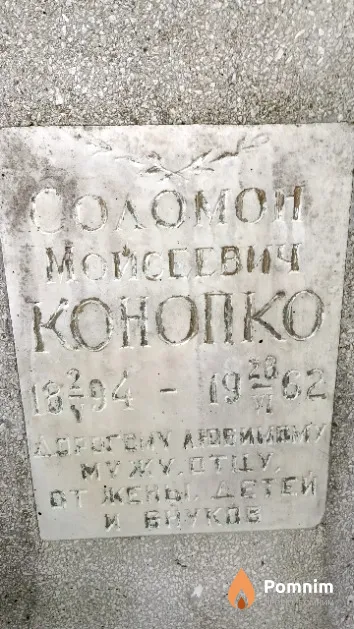 Соломон
Мойсеевич
КОНОПКО
18 2/V 94 – 19 28/VI 62
ДОРОГОМУ ЛЮБИМОМУ
МУЖУ, ОТЦУ,
ОТ ЖЕНЫ, ДЕТЕЙ
И ВНУКОВ
Pomnim